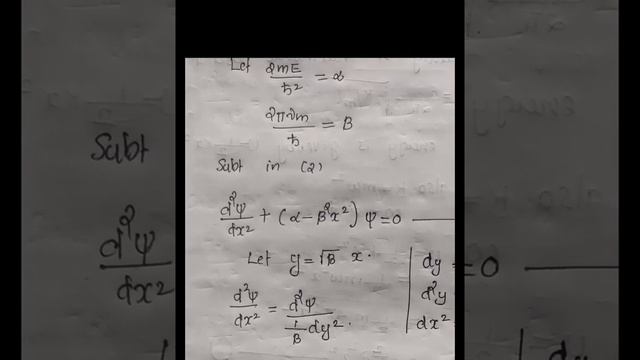 Let 2mE/ħ² = α
2πνm/ħ = β
Subt in (2)
d²ψ/dx² + (α - β²x²) ψ = 0
Let y = √β x.
d²ψ/dx² = d²ψ / (1/β dy².)
dy
d²y
dx²
Subt
d²ψ/dx²
= 0